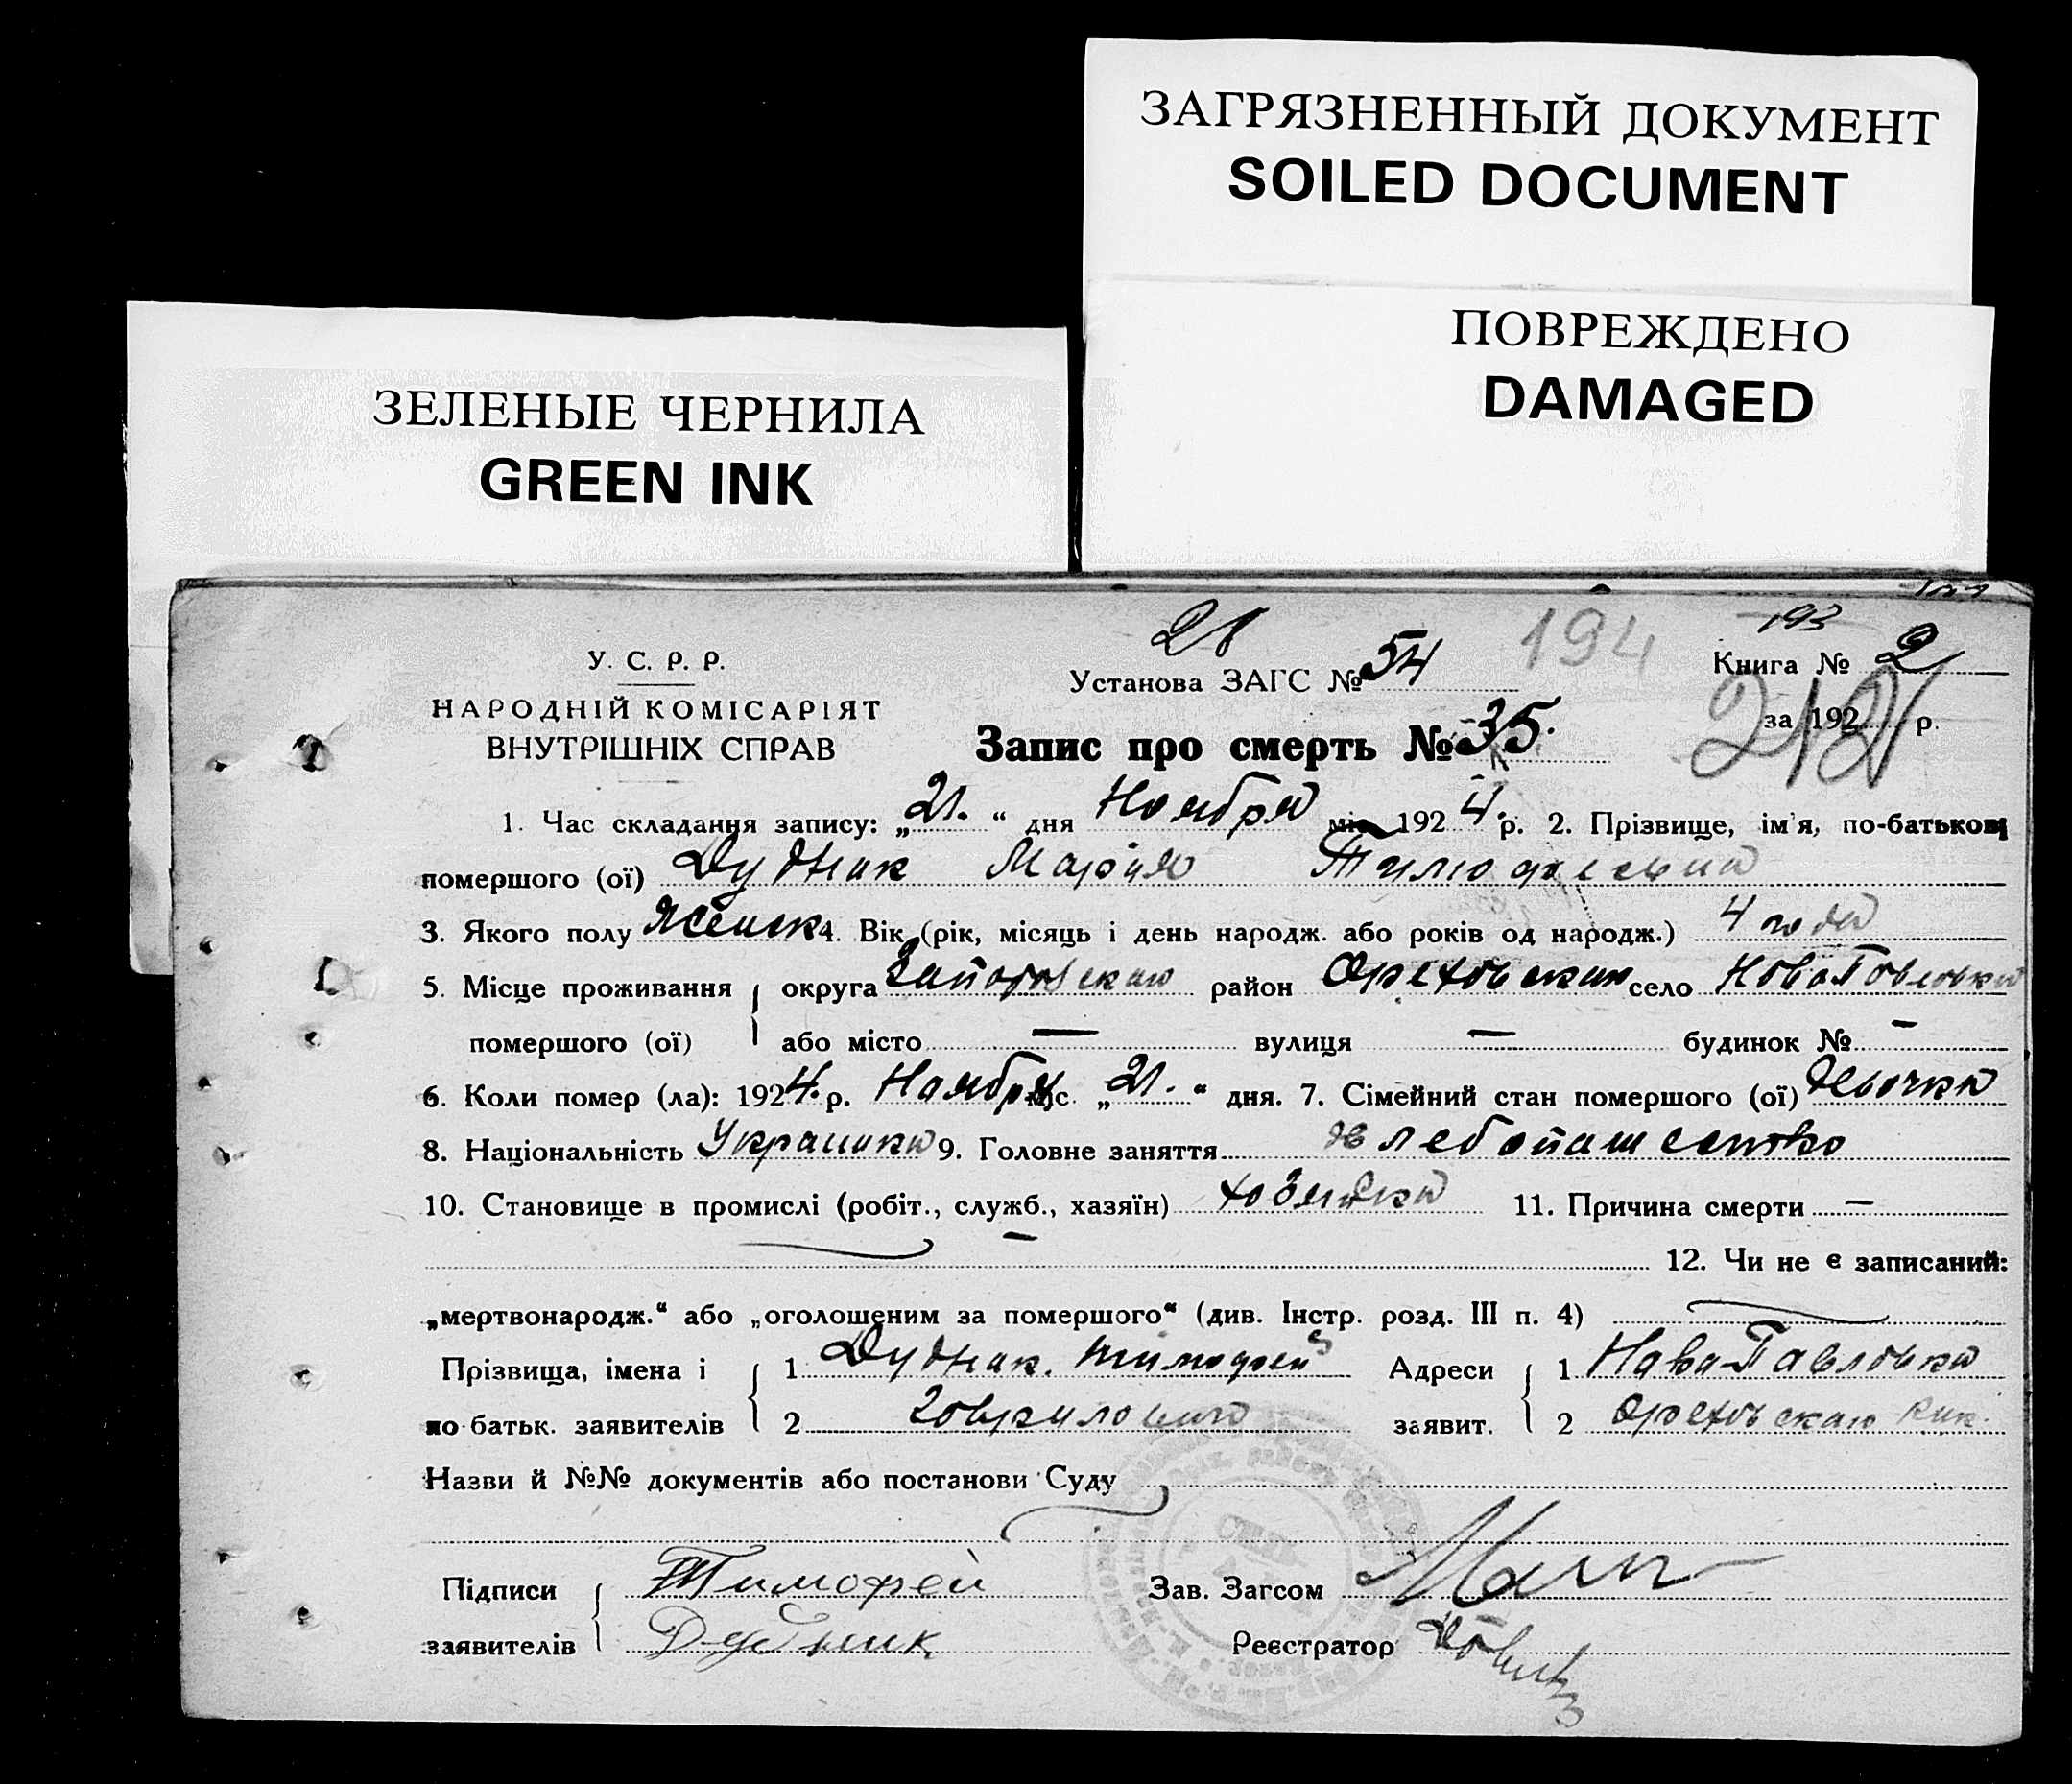 ЗАГРЯЗНЕННЫЙ ДОКУМЕНТ
SOILED DOCUMENT
ПОВРЕЖДЕНО
DAMAGED
ЗЕЛЕНЫЕ ЧЕРНИЛА
GREEN INK
193
194
У. С. Р. Р.
Установа ЗАГС № 54
Книга № 2
НАРОДНІЙ КОМІСАРІЯТ
ВНУТРІШНІХ СПРАВ
за 192 р.
212
Запис про смерть № 35.
1. Час складання запису: „21.“ дня Ноября міс. 1924 р. 2. Прізвище, ім'я, по-батькові
помершого (ої) Дудник Мария Тимофеевна
3. Якого полу Женск 4. Вік (рік, місяць і день народж. або років од народж.) 4 года
5. Місце проживання округа район Ореховскаго село
помершого (ої) або місто — вулиця — будинок № —
6. Коли помер (ла): 1924. р. Ноября міс. „21.“ дня. 7. Сімейний стан помершого (ої) Девочка
8. Національність Украинка 9. Головне заняття хлебопашество
10. Становище в промислі (робіт., служб., хазяїн) хозяйка 11. Причина смерти —
—
12. Чи не є записаний:
„мертвонародж.“ або „оголошеним за помершого“ (див. Інстр. розд. III п. 4)
Прізвища, імена і 1 Дудник. Тимофей Адреси 1 Нова-Павловка
по батьк. заявителів 2 заявит. 2 Ореховскаго
Назви й №№ документів або постанови Суду
Підписи Тимофей Зав. Загсом
заявителів Дудник Реєстратор